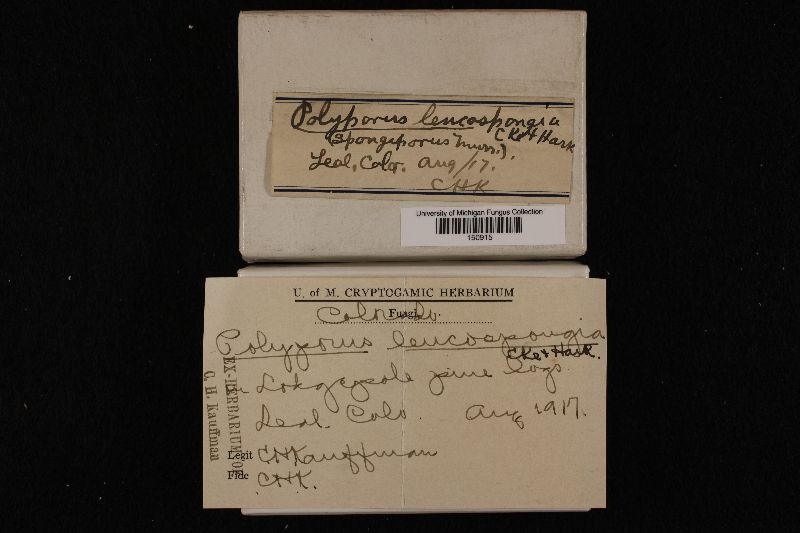 Polyporus leucospongia
Cke & Hark
(Spongiporus Murr.).
Leal, Colo. Aug/17.
CHK
University of Michigan Fungus Collection
150915
U. of M. CRYPTOGAMIC HERBARIUM
Fungi
Colorado
Polyporus leucospongia
Cke & Hark.
on Lodgepole pine logs
Leal. Colo. Aug 1917.
Legit CHKauffman
Fide CHK.
EX-HERBARIUM OF
C. H. Kauffman